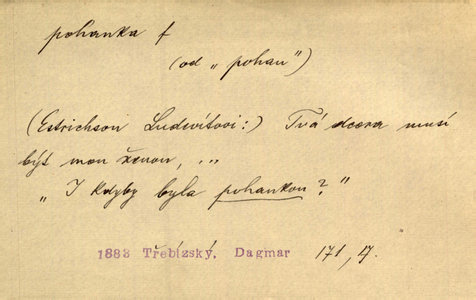 pohanka f
(od „pohan")
(Estrichson Ludevítovi:) Tvá dcera musí
být mou ženou, ...
„I kdyby byla pohankou?"
1883 Třebízský, Dagmar 171,